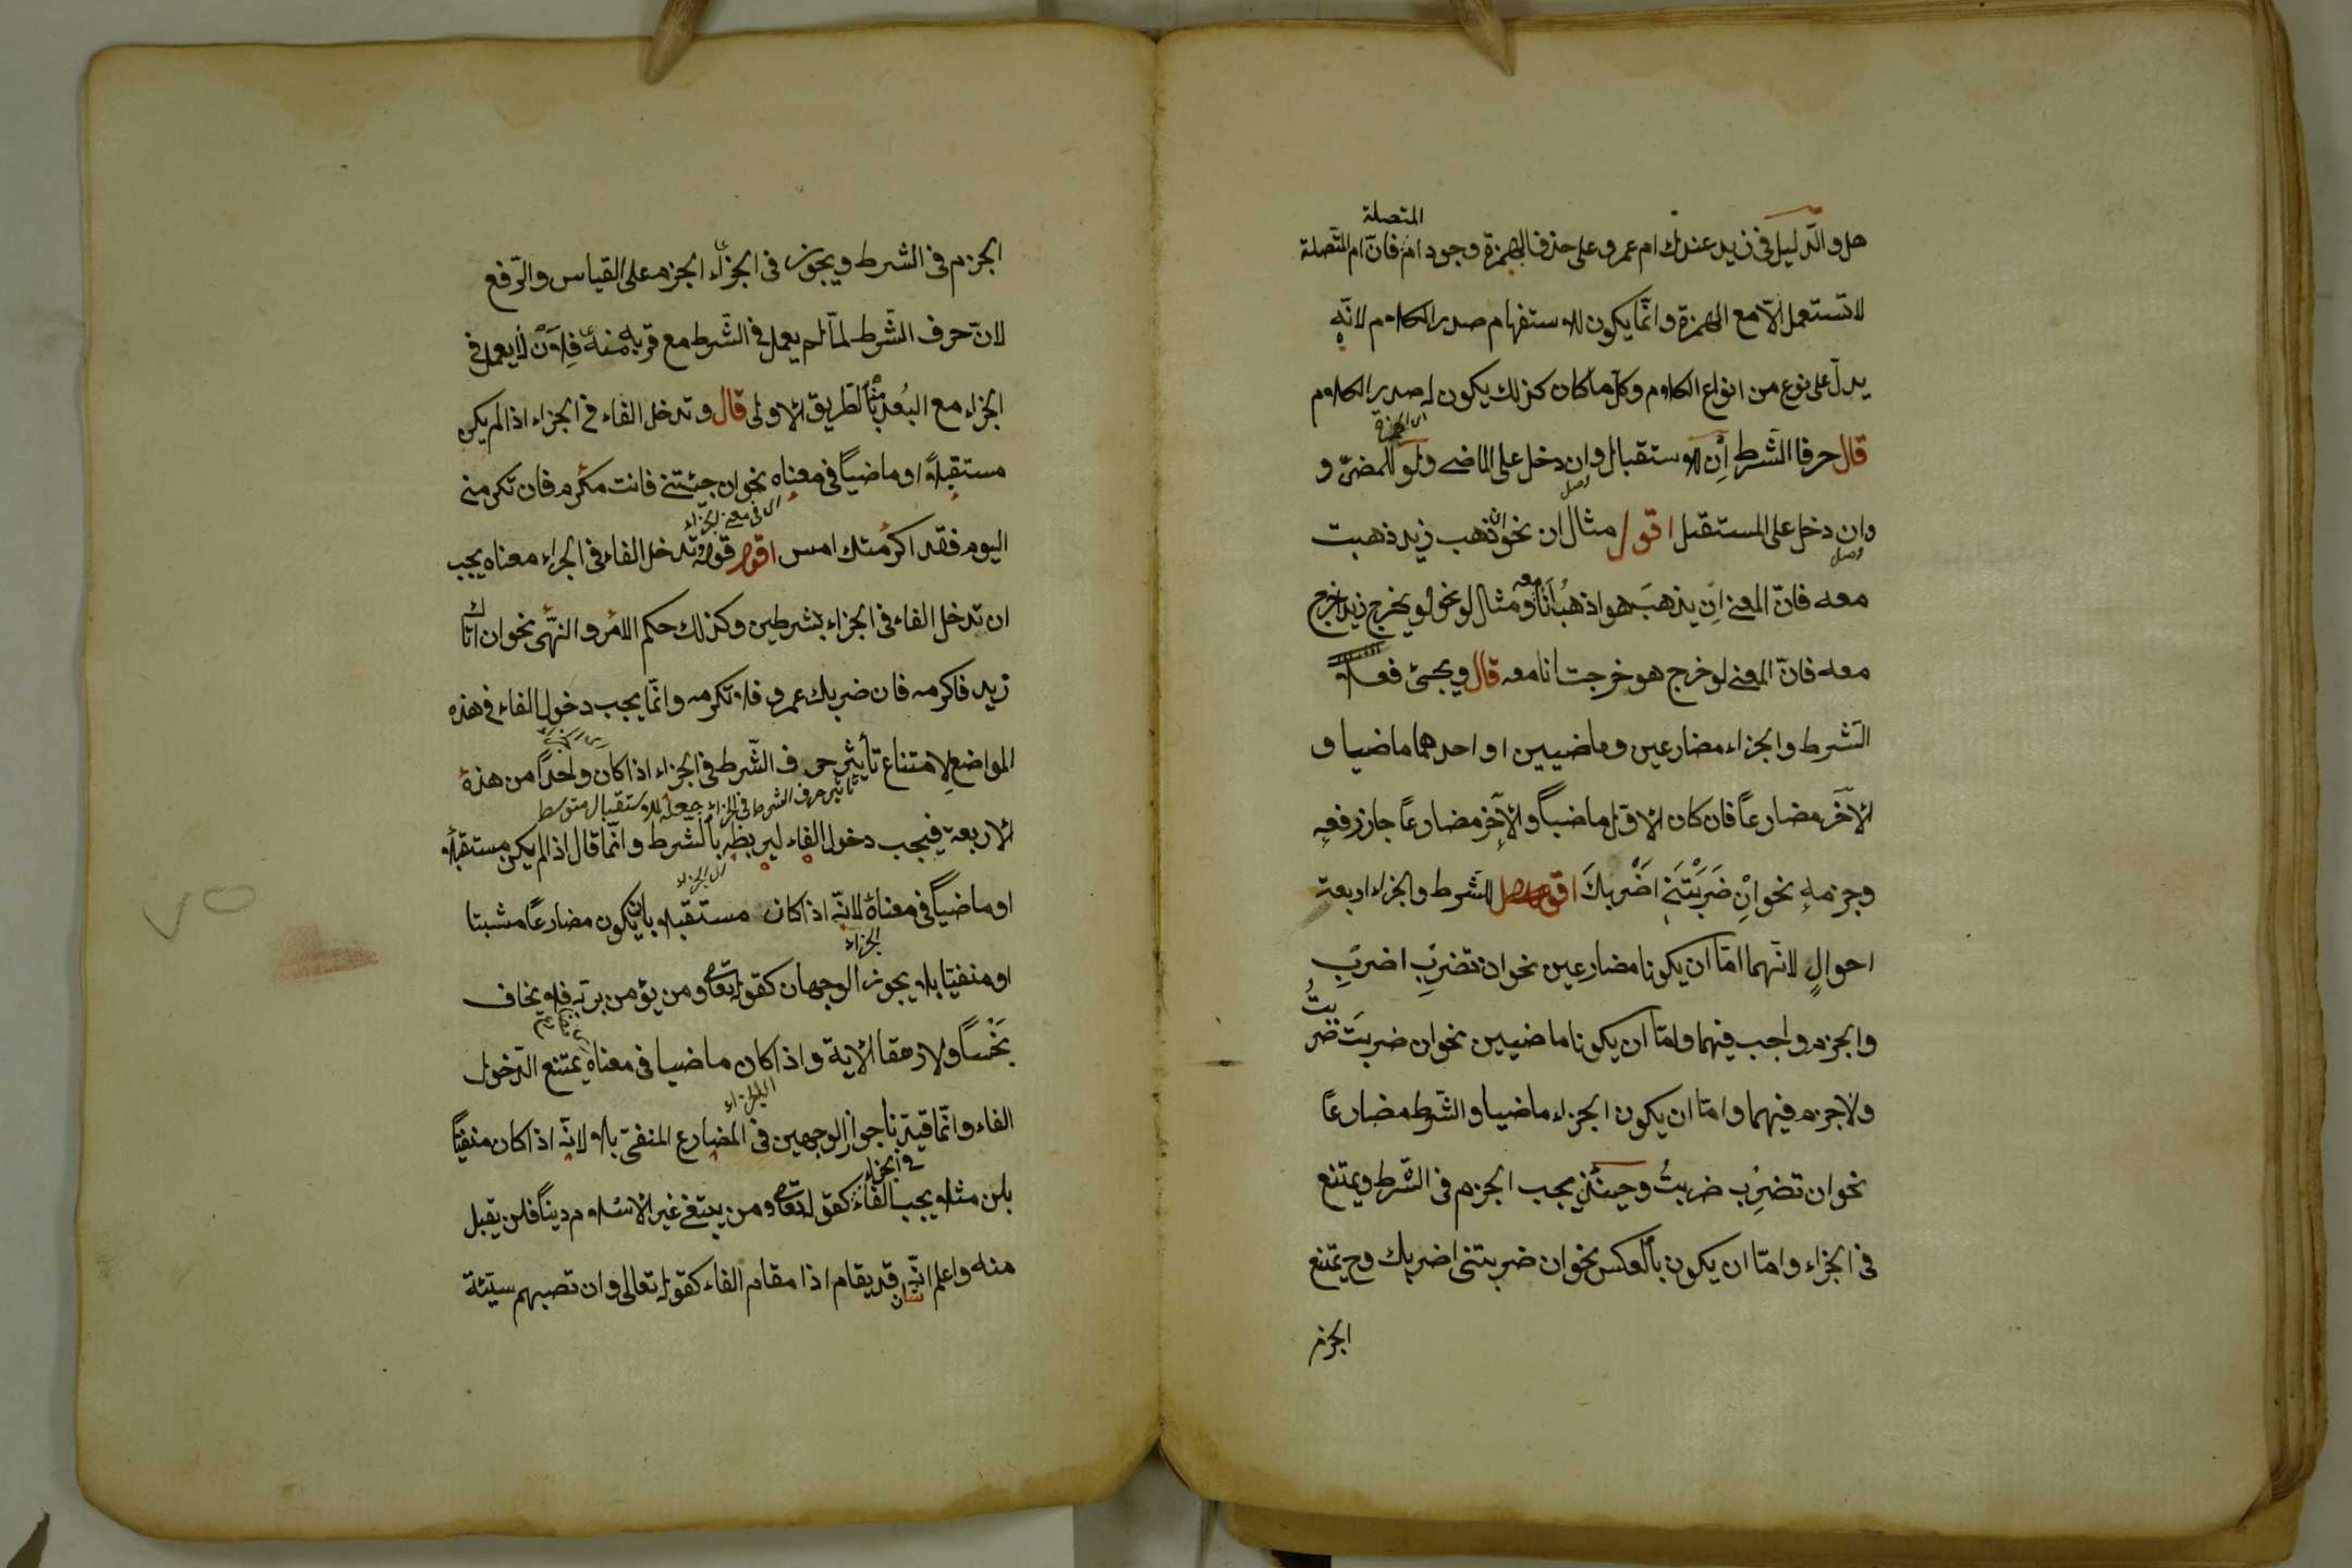 المتصلة
هل والدّليل في زيد عندك ام عمرو على حذف الهمزة وجود ام فانّ ام المتّصلة
لا تستعمل الّا مع الهمزة وانّما يكون للاستفهام صدر الكلام لانّه
يدلّ على نوع من انواع الكلام وكلّ ما كان كذلك يكون له صدر الكلام
قال حرفا الشّرط اِنْ للاستقبال وان دخل على الماضى ولو للمضىّ و
وصل
وان دخل على المستقبل اقول مثال ان نحو ان ذهب زيد ذهبت
وصل
معه فانّ المعنى اِن يذهبَ هو اذهبُ اَنَا معه ومثال لو نحو لو يخرج زيد اخرج
معه فانّ المعنى لو خرج هو خرجت انا معه قال ويجئ فعلا
الشّرط والجزاء مضارعين وماضيين او احدهما ماضيا و
الآخَر مضارعاً فان كان الاوّل ماضياً والآخِر مضارعاً جاز رفعه
وجزمه نحو اِنْ ضَرَبْتَنِى اَضْرِبكَ اقول للشّرط والجزاء اربعة
احوالٍ لانّهما امّا ان يكونا مضارعين نحو ان تضرِبْ اضرِبْ
والجزم واجب فيهما وامّا ان يكونا ماضيين نحو ان ضربتَ ضربتُ
ولا جزم فيهما وامّا ان يكون الجزاء ماضيا والشّرط مضارعاً
نحو ان تضرِب ضربتُ وحينئذٍ يجب الجزم فى الشّرط ويمتنع
فى الجزاء وامّا ان يكون بالعكس نحو ان ضربتنى اضربك وح يمتنع
الجزم
الجزم فى الشرط ويجوز فى الجزاء الجزم على القياس والرّفع
لانّ حرف الشّرط لمّا لم يعمل فى الشّرط مع قربه منه فلاَنْ لا يعمل فى
الجزاء مع البُعد بالطريق الاولى قال وتدخل الفاء فى الجزاء اذا لم يكن
مستقبلاً او ماضياً فى معناه نحو ان جئتنى فانت مكرم فان تكرمنى
اى فى معنى الجزاء
اليوم فقد اكرمتك امس اقول قوله وتدخل الفاء فى الجزاء معناه يجب
ان تدخل الفاء فى الجزاء بشرطين وكذلك حكم الامر والنّهى نحو ان اتاك
زيد فاكرمه فان ضربك عمرو فلا تكرمه وانّما يجب دخول الفاء فى هذه
المواضع لامتناع تأثير حرف الشّرط فى الجزاء اذا كان واحداً من هذه
تاثير حرف الشرط فى الجزاء جعله للاستقبال
الاربعة فيجب دخول الفاء ليربطه بالشّرط وانّما قال اذا لم يكن مستقبلاً
اى الجزاء
او ماضياً فى معناه لانّه اذا كان مستقبلا بان يكون مضارعاً مثبتا
الجزاء
او منفيّا بلا يجوز الوجهان كقوله تعالى ومن يؤمن بربّه فلا يخاف
بَخْساً ولا رهقا الاية واذا كان ماضيا فى معناه يمتنع الدّخول
الفاء وانّما قيّدنا جواز الوجهين فى المضارع المنفىّ بلا لانّه اذا كان منفيّاً
فى الجزاء
بلن مثلا يجب الفاء كقوله تعالى ومن يبتغ غير الاسلام ديناً فلن يقبل
منه واعلم انّه قد يقام اذا مقام الفاء كقوله تعالى وان تصبهم سيّئة
شان